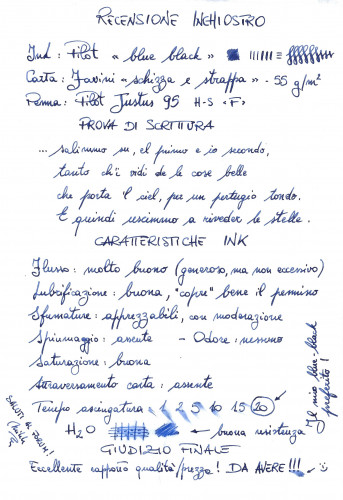 RECENSIONE INCHIOSTRO
Ink: Pilot « blue black »
Carta: Favini « schizza e strappa » - 55 g/m²
Penna: Pilot Justus 95 H-S «F»
PROVA DI SCRITTURA
... salimmo su, el primo e io secondo,
tanto ch'i vidi de le cose belle
che porta 'l ciel, per un pertugio tondo.
E quindi uscimmo a riveder le stelle.
CARATTERISTICHE INK
Flusso: molto buono (generoso, ma non eccessivo)
Lubrificazione: buona, "copre" bene il pennino
Sfumature: apprezzabili, con moderazione
Spiumaggio: assente - Odore: nessuno
Saturazione: buona
Attraversamento carta: assente
Tempo asciugatura 1 2 5 10 15 20
H2O buona resistenza
GIUDIZIO FINALE
Eccellente rapporto qualità/prezzo! DA AVERE!!!
Il mio blue-black
preferito!
SALUTI AL FORUM!